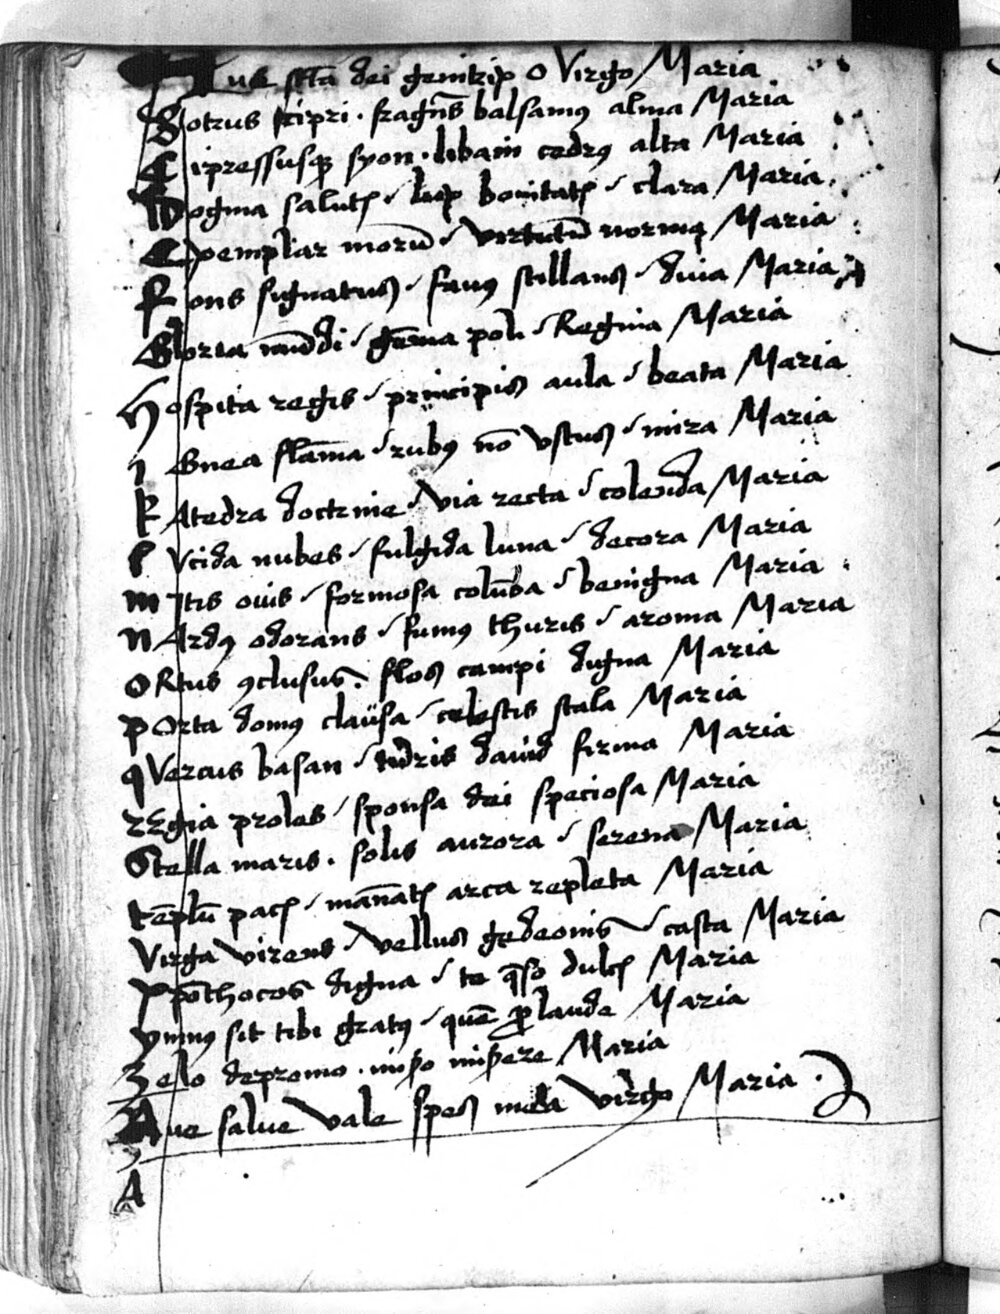 Aue sctā dei genitrix o Virgo Maria
Botrus cipri . fragrñs balsamꝰ alma Maria
Cipressusqꝫ syon . libani cedrꝰ alta Maria
Dogma salutꝭ / lex bonitatꝭ / clara Maria
Exemplar morū / virtutū norma Maria
Fons signatus / fauꝰ stillans / diuia Maria
Gloria mūdi / gēma poli / Regina Maria
Hospita regis / principis aula / beata Maria
IGnea flāma / rubꝰ nō vstus / mira Maria
kAtedra doctrine / via recta / colenda Maria
lVcida nubes / fulgida luna / decora Maria
mItis ouis / formosa colūba / benigna Maria
nArdꝰ odorans / fumꝰ thuris / aroma Maria
oRtus ꝯclusus . flos campi digna Maria
pOrta domꝰ clausa / celestis scala Maria
qVercus basan / turris dauid firma Maria
rEgia proles / sponsa dei speciosa Maria
Stella maris . solis aurora / serena Maria
tēplū pacꝭ / mānatꝭ arca repleta Maria
Virga virens / vellus gedeonis / casta Maria
Xpōthocos digna / te q̄so dulcꝭ Maria
ymnꝰ sit tibi gratꝰ / quē ꝓlaude Maria
Zelo depremo . Maria
Aue salue vale spes mea virgo Maria .
A